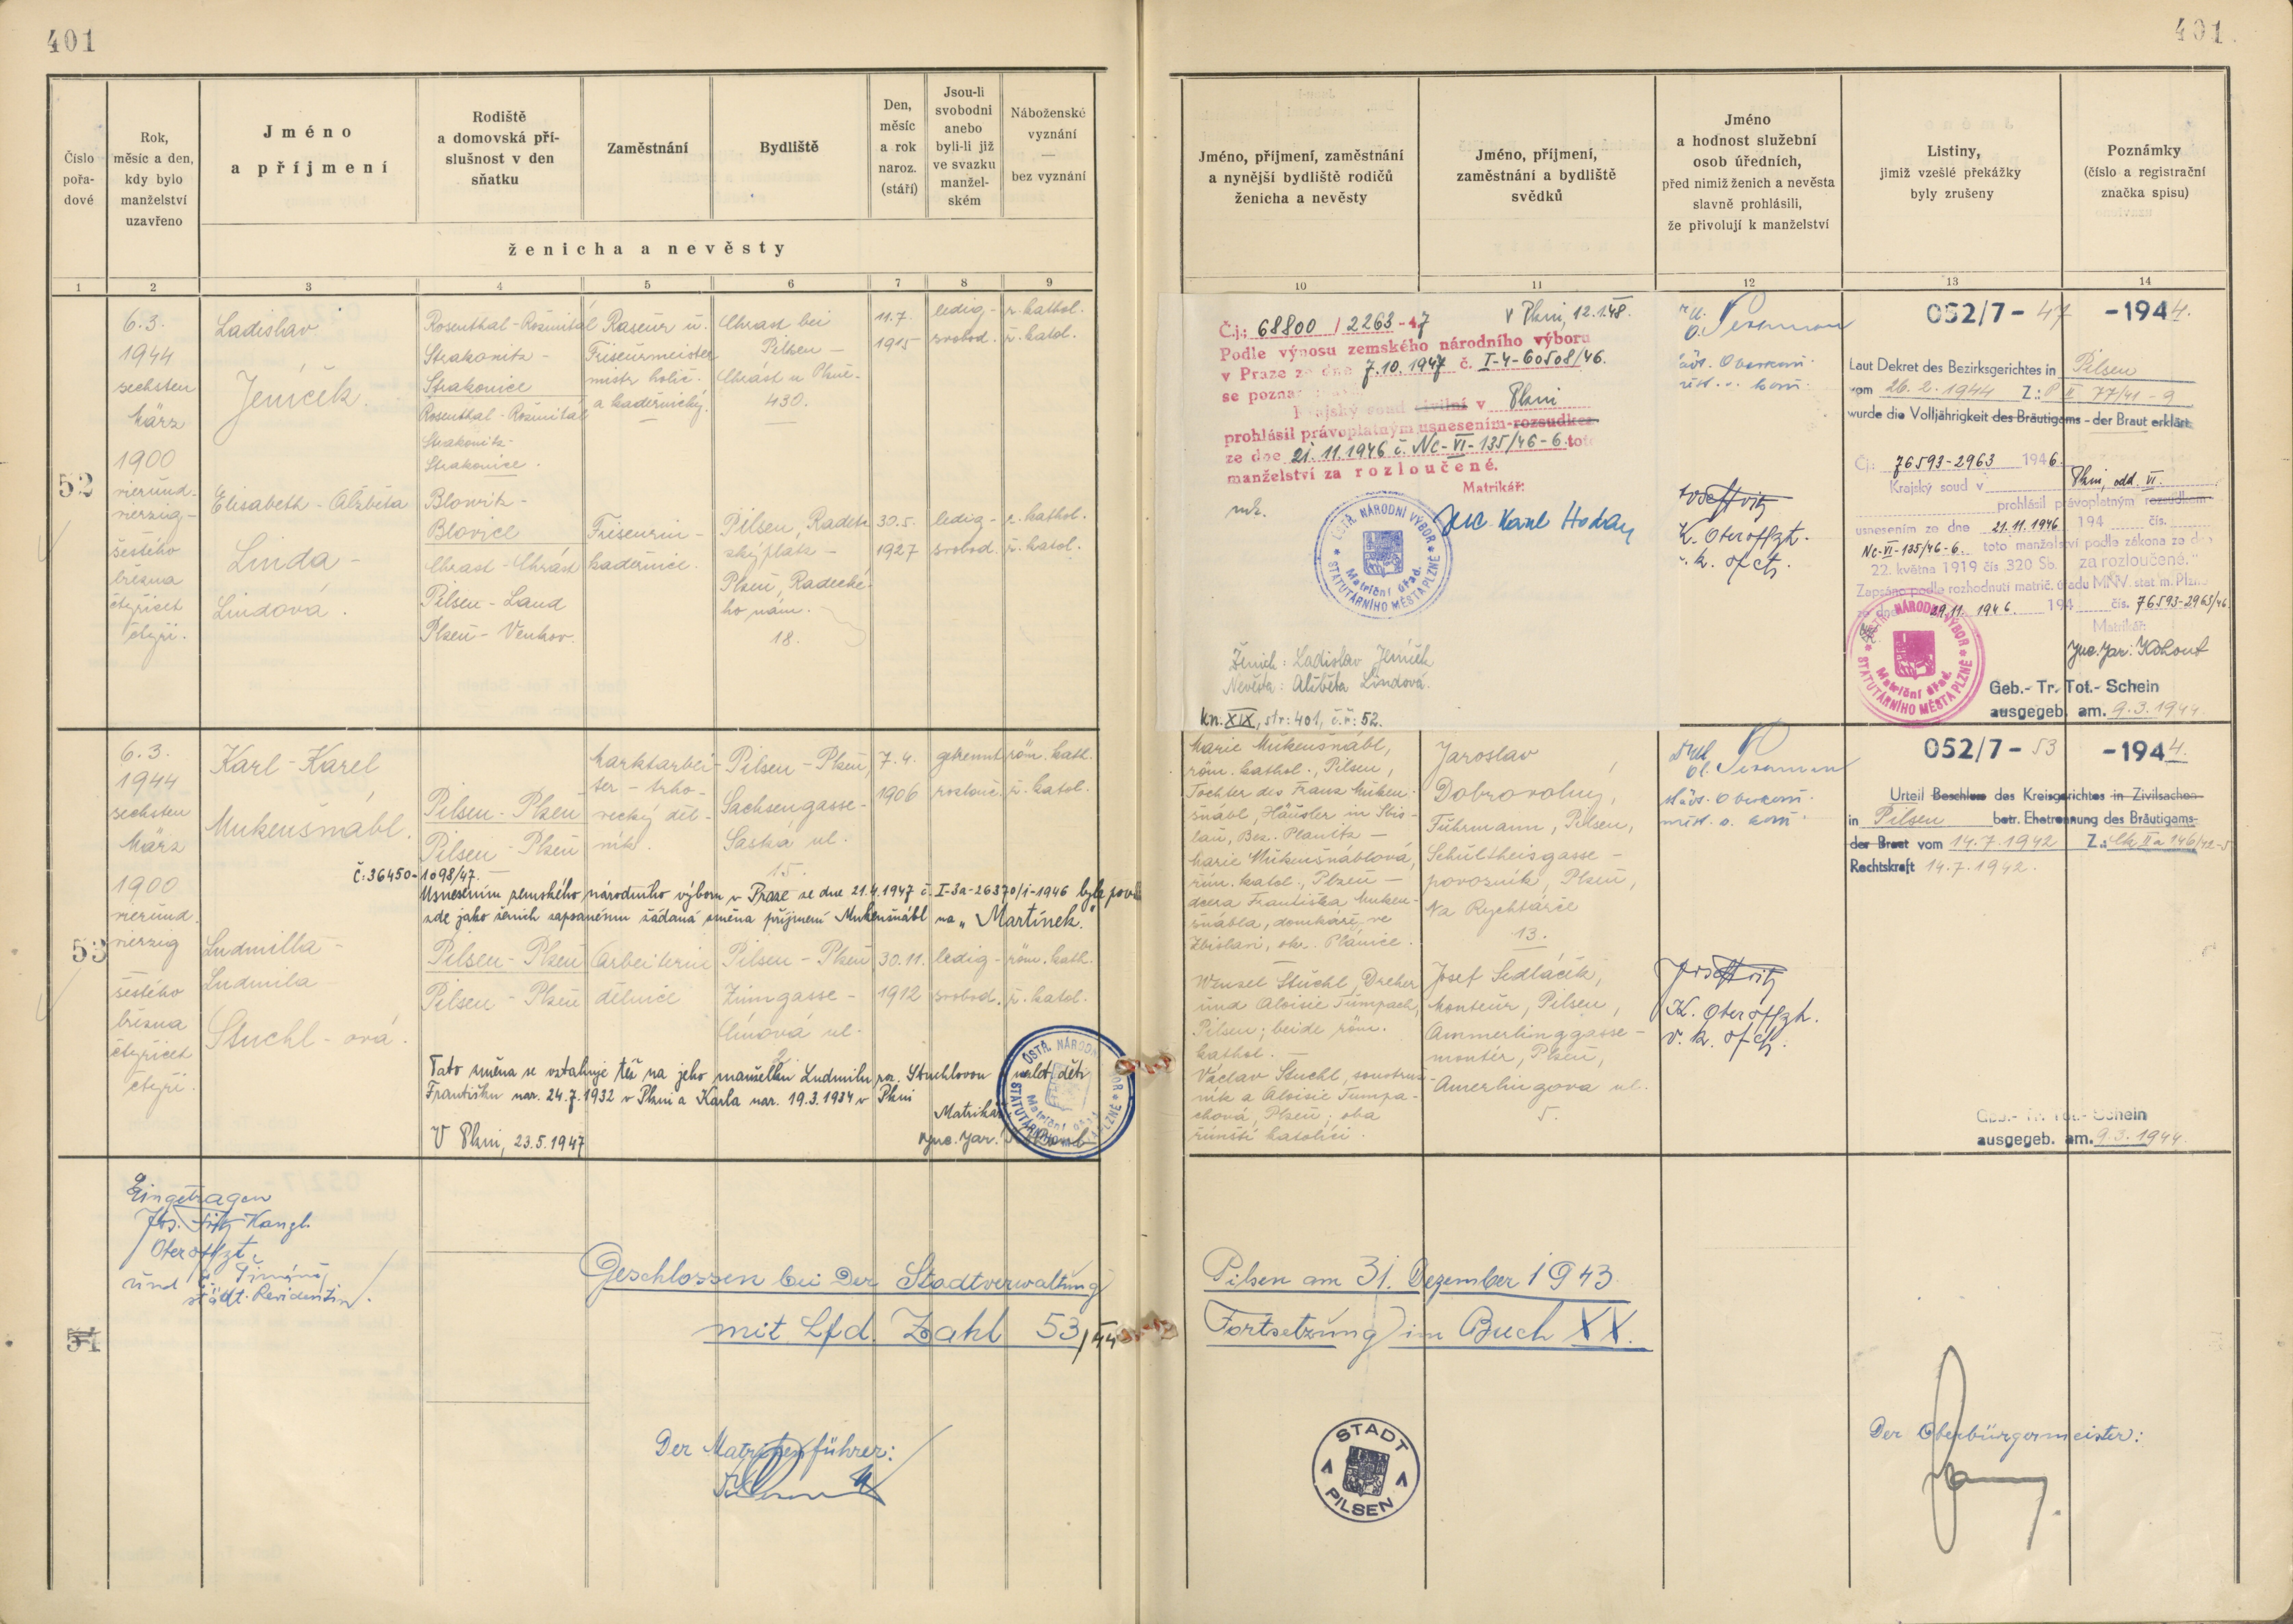 401
401
Číslo
pořa-
dové
Rok,
měsíc a den,
kdy bylo
manželství
uzavřeno
Jméno
a příjmení
Rodiště
a domovská pří-
slušnost v den
sňatku
Zaměstnání
Bydliště
Den,
měsíc
a rok
naroz.
(stáří)
Jsou-li
svobodni
anebo
byli-li již
ve svazku
manžel-
ském
Náboženské
vyznání
—
bez vyznání
ženicha a nevěsty
Jméno, příjmení, zaměstnání
a nynější bydliště rodičů
ženicha a nevěsty
Jméno, příjmení,
zaměstnání a bydliště
svědků
Jméno
a hodnost služební
osob úředních,
před nimiž ženich a nevěsta
slavně prohlásili,
že přivolují k manželství
Listiny,
jimiž vzešlé překážky
byly zrušeny
Poznámky
(číslo a registrační
značka spisu)
1 2 3 4 5 6 7 8 9 10 11 12 13 14
52
6.3.
1944
sechsten
März
1900
vierund-
vierzig-
šestého
března
čtyřicet
čtyři.
Ladislav
Jeníček.
Rosenthal-Rožmitál
Strakonitz -
Strakonice
Rosenthal-Rožmitál
Strakonitz-
Strakonice.
Raseur u.
Friseurmeister
mistr holič.
a kadeřnický.
Chrast bei
Pilsen -
Chrást u Plzně-
430.
11.7.
1915
ledig-
svobod.
r. kathol.
ř. katol.
Elisabeth - Alžběta
Linda -
Lindová.
Blowitz-
Blovice
Chrast-Chrást
Pilsen-Land
Plzeň-Venkov.
Friseurin-
kadeřnice.
Pilsen, Radetz
kýplatz-
Plzeň, Radecké-
ho nám.
18.
30.5.
1927
ledig-
svobod.
r. kathol.
ř. katol.
Č.j.: 68800/2263-47 V Plzni, 12.1.48.
Podle výnosu zemského národního výboru
v Praze ze dne 7.10.1947 č. I-4-60508/46.
se pozna
Krajský soud civilní v Plzni
prohlásil právoplatným usnesením-rozsudkem
ze dne 21.11.1946 č. Nc-VI-135/46-6. toto
manželství za rozloučené.
Matrikář:
JUC. Karel Hodan
ÚSTŘ. NÁRODNÍ VÝBOR
STATUTÁRNÍHO MĚSTA PLZNĚ
Matriční úřad.
Ženich: Ladislav Jeníček
Nevěsta: Alžběta Lindová.
kn. XIX, str: 401, č.ř: 52.
K. Oberoffzt.
v. k. ofct.
052/7 - 47 -1944.
Laut Dekret des Bezirksgerichtes in Pilsen
vom 26.2.1944 Z.: P II 77/41-9
wurde die Volljährigkeit des Bräutigams - der Braut erklärt.
Čj: 76593-2963 1946.
Krajský soud v Plzni, odd. VI.
prohlásil právoplatným rozsudkem
usnesením ze dne 21.11.1946 194 čís.
Nc-VI-135/46-6. toto manželství podle zákona ze dne
22. května 1919 čís. 320 Sb. za rozloučené."
Zapsáno podle rozhodnutí matrič. úřadu MNV. stat. m. Plzně
ze dne 29.11.1946. 194 čís. 76593-2963/46
Matrikář:
JUC. Jar. Kohout
ÚSTŘ. NÁRODNÍ VÝBOR
STATUTÁRNÍHO MĚSTA PLZNĚ
Matriční úřad.
Geb.- Tr. Tot.- Schein
ausgegeb. am. 9.3.1944.
53
6.3.
1944
sechsten
März
1900
vierund-
vierzig
šestého
března
čtyřicet
čtyři.
Karl-Karel
Mukenšnábl.
Pilsen-Plzeň
Pilsen-Plzeň
Marktarbei-
ter - trho-
vecký děl-
ník.
Pilsen-Plzeň,
Sachsengasse-
Saská ul.
15.
7.4.
1906
getrennt
rozlouč.
röm. kath.
ř. katol.
Č: 36450-1098/47.
Usnesením zemského národního výboru v Praze ze dne 21.4.1947 č. I-3a-26370/1-1946 byla povol.
zde jako ženich zapsanému žádaná změna příjmení Mukenšnábl na „Martínek."
Ludmilla-
Ludmila
Stuchl-ová.
Pilsen-Plzeň
Pilsen-Plzeň
Arbeiterin
dělnice
Pilsen-Plzeň
Zinngasse-
Cínová ul.
2.
30.11.
1912
ledig-
svobod.
röm. kath.
ř. katol.
Tato změna se vztahuje též na jeho manželku Ludmilu roz. Stuchlovou a nezlet. děti
Františku nar. 24.7.1932 v Plzni a Karla nar. 19.3.1934 v Plzni
V Plzni, 23.5.1947
Matrikář
JUC. Jar. Kohout
ÚSTŘ. NÁRODNÍ VÝBOR
STATUTÁRNÍHO MĚSTA PLZNĚ
Matriční úřad
Marie Mukenšnábl,
röm. kathol., Pilsen,
Tochter des Franz Muken-
šnábl, Häusler in Sbis-
lau, Bez. Planitz -
Marie Mukenšnáblová,
řím. katol., Plzeň -
dcera Františka Muken-
šnábla, domkáře, ve
Zbislavi, okr. Plánice.
Wenzel Stuchl, Dreher
und Aloisie Tumpach,
Pilsen; beide röm.
kathol. -
Václav Stuchl, soustruž-
ník a Aloisie Tumpa-
chová, Plzeň; oba
římští katolíci.
Jaroslav
Dobrovolný,
Fuhrmann, Pilsen,
Schultheisgasse-
povozník, Plzeň,
Na Rychtářce
13.
Josef Sedláček,
Monteur, Pilsen,
Ammerlinggasse-
montér, Plzeň,
Amerlingova ul.
5.
K. Oberoffzt.
v. k. ofct.
052/7 - 53 -1944.
Urteil Beschluss des Kreisgerichtes in Zivilsachen
in Pilsen betr. Ehetrennung des Bräutigams-
der Braut vom 14.7.1942 Z.: Ck IIa 146/42-5
Rechtskraft 14.7.1942.
Geb.- Tr. Tot.- Schein
ausgegeb. am. 9.3.1944.
54
Eingetragen
Oberoffzt.
und
städt. Revidentin.
Geschlossen bei Der Stadtverwaltung
mit Lfd. Zahl 53/44
Pilsen am 31. Dezember 1943
Fortsetzung im Buch XX.
Der Matrikenführer:
STADT
PILSEN
Der Oberbürgermeister: